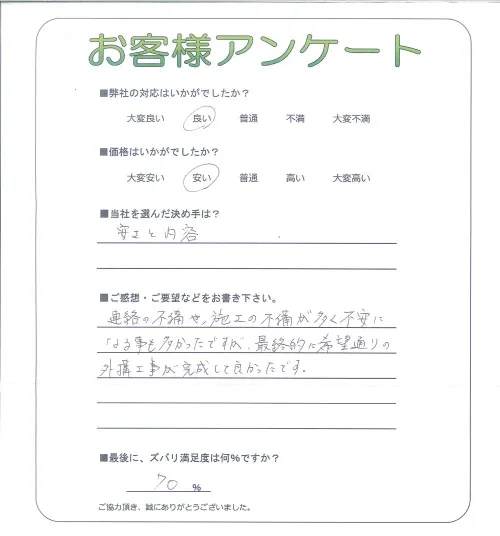 お客様アンケート
■弊社の対応はいかがでしたか？
大変良い 良い 普通 不満 大変不満
■価格はいかがでしたか？
大変安い 安い 普通 高い 大変高い
■当社を選んだ決め手は？
安工と内容
■ご感想・ご要望などをお書き下さい。
連絡の不備や、施工の不備が多く不安に
なる事も多かったですが、最終的に希望通りの
外構工事が完成して良かったです。
■最後に、ズバリ満足度は何%ですか？
70 %
ご協力頂き、誠にありがとうございました。